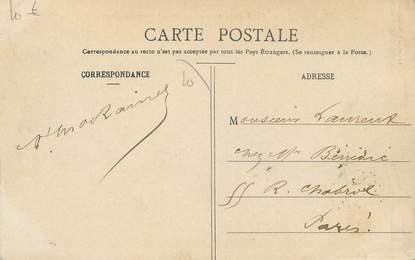 10 €
CARTE POSTALE
Correspondance au recto n'est pas acceptée par tous les Pays Étrangers. (Se renseigner à la Poste.)
CORRESPONDANCE
10
ADRESSE
Monsieur Laurent
chez Mr Bénédic
R. Chabrol
Paris!